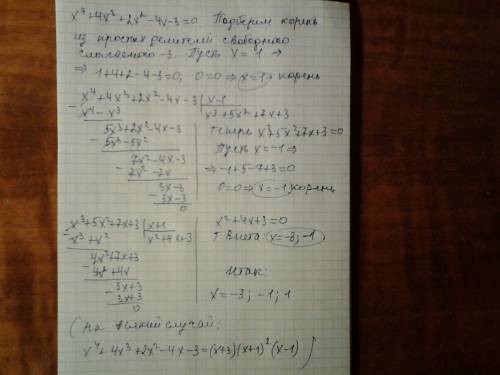 x⁴+4x³+2x²-4x-3=0 Подберём корень
из простых делителей свободного
слагаемого -3. Пусть x=1 ⇒
⇒ 1+4+2-4-3=0; 0=0 ⇒ x=1 - корень
x⁴+4x³+2x²-4x-3 | x-1
x⁴-x³
x³+5x²+7x+3
5x³+2x²-4x-3
5x³-5x²
7x²-4x-3
7x²-7x
3x-3
3x-3
0
Теперь x³+5x²+7x+3=0
Пусть x=-1 ⇒
⇒ -1+5-7+3=0
0=0 ⇒ x=-1 корень
x³+5x²+7x+3 | x+1
x³+x²
x²+4x+3
4x²+7x+3
4x²+4x
3x+3
3x+3
0
x²+4x+3=0
т. Виета: x=-3; -1
Итак:
x=-3; -1; 1
(На всякий случай:
x⁴+4x³+2x²-4x-3=(x+3)(x+1)²(x-1))